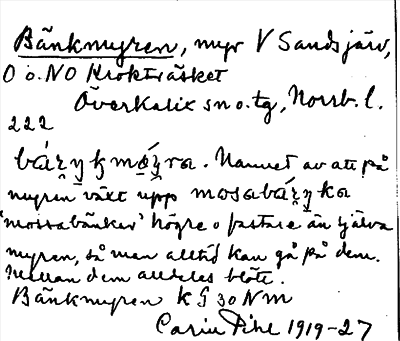 Bänkmyren, myr V Sandsjärv,
O o. NO Krokträsket
Överkalix sn o. tg, Norrb. l.
222
Namnet av att på
myren växt upp
'mossabänker' högre o fastare än själva
myren, så man alltid kan gå på dem.
Mellan dem alldeles blöte.
Bänkmyren k G 30 NM
Carin Pihl 1919-27